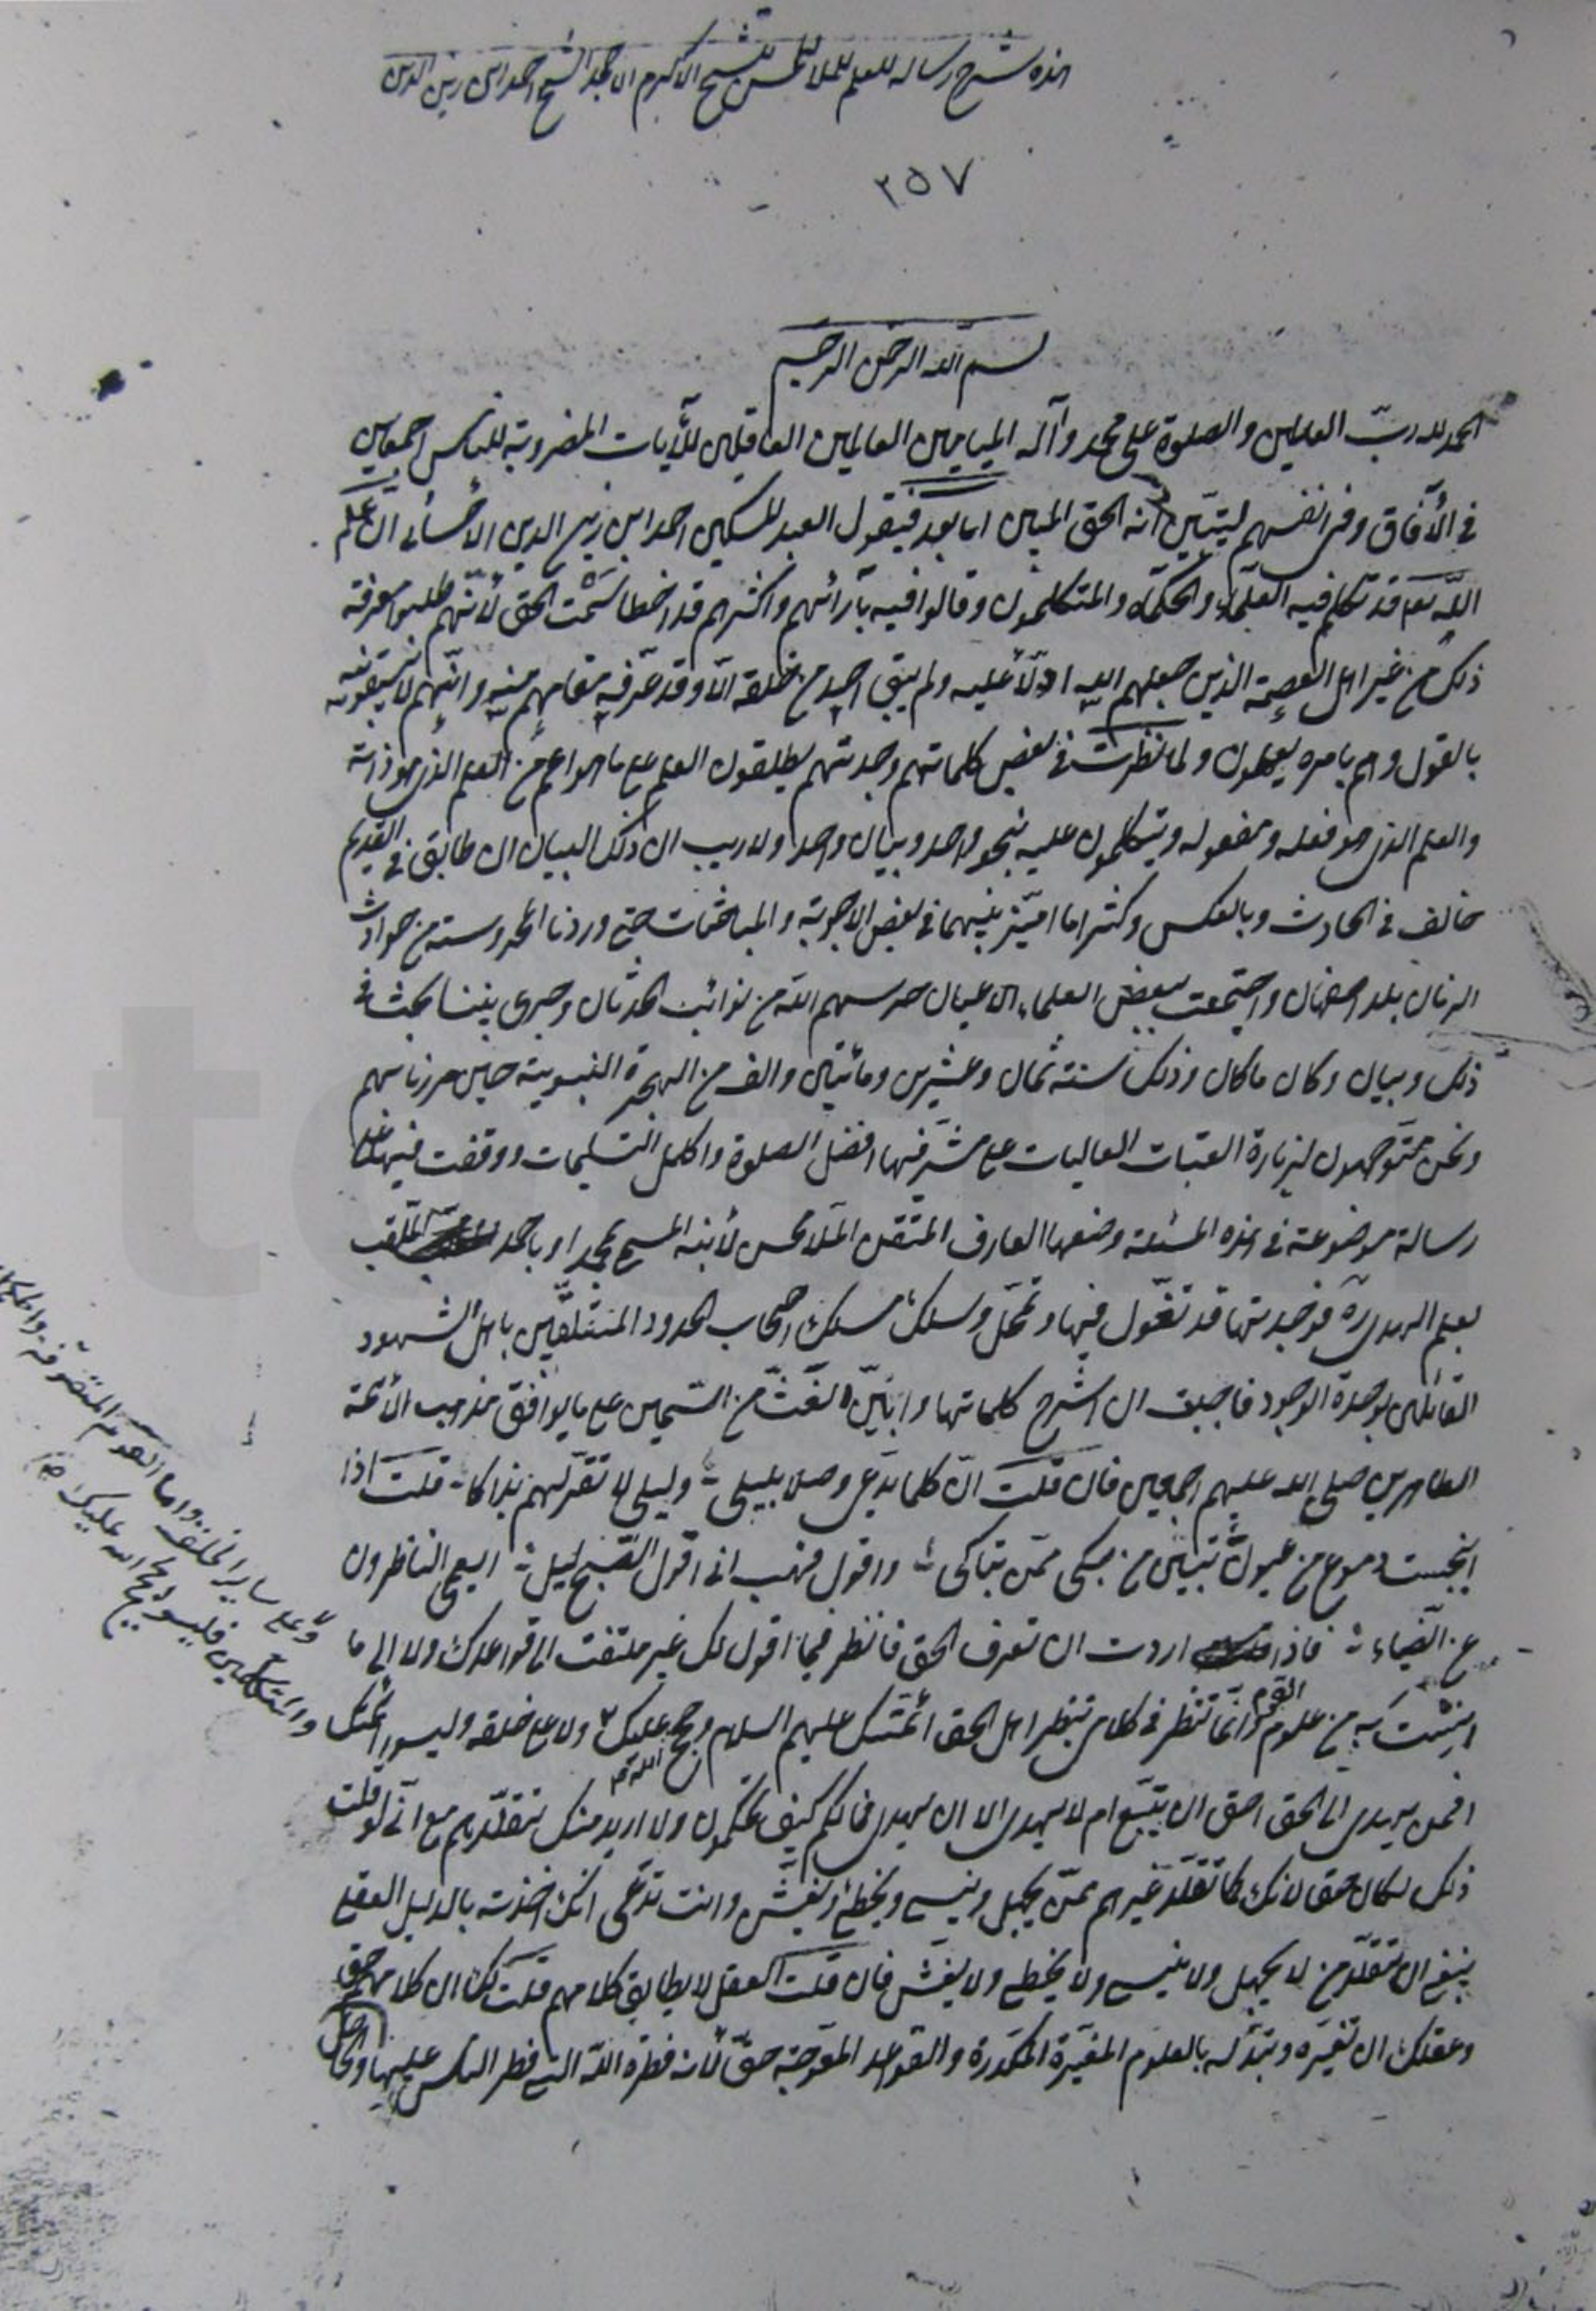 هذه شرح رساله للعلم للملا محسن للشيخ الاكرم الامجد الشيخ احمد ابن زين الدين
٢٥٧
بسم الله الرحمن الرحيم
الحمد لله رب العالمين والصلوة على محمد وآله الميامين العالمين العاقلين للآيات المضروبة للناس اجمعين
في الآفاق وفي انفسهم ليتبين انه الحق المبين اما بعد فيقول العبد المسكين احمد ابن زين الدين الاحسائي ان علم
الله تعا قد تكلم فيه العلماء والحكماء والمتكلمون وقالوا فيه بآرائهم واكثرهم قد اخطا سمت الحق لأنهم طلبوا معرفة
ذلك من غير اهل العصمة الذين جعلهم الله ادلّاء عليه ولم يبق احد من خلقه الّا وقد عرّفه مقامهم منه وانهم لا يسبقونه
بالقول وهم بامره يعملون ولما نظرت في بعض كلماتهم وجدتهم يطلقون العلم على ما هو اعم من العلم الذي هو ذاته
والعلم الذي هو فعله ومفعوله ويتكلمون عليه بنحو واحد وبيان واحد ولا ريب ان ذلك البيان ان طابق في القديم
خالف في الحادث وبالعكس وكثيرا ما اميّز بينهما في بعض الاجوبة والمباحثات حتى وردنا المحروسة من حوادث
الزمان بلد اصفهان واجتمعت ببعض العلماء الاعيان حرسهم الله من نوائب الحدثان وجرى بيننا بحث في
ذلك وبيان وكان ما كان وذلك سنة ثمان وعشرين ومائتين والف من الهجرة النبوية حين مررنا بهم
ونحن متوجهون لزيارة العتبات العاليات على مشرّفيها افضل الصلوة واكمل التسليمات ووقفت فيها على
رسالة موضوعة في هذه المسئلة وضعها العارف المتقن الملا محسن لأبنه المسمى بمحمد او باحمد الملقب
بعلم الهدى ره فوجدتها قد تغوّل فيها وتمحّل وسلك مسلك اصحاب الحدود المتلقّبين باهل الشهود
القائلين بوحدة الوجود فاحببت ان اشرح كلماتها وابيّن الغثّ من السمين على ما يوافق مذهب الأئمة
الطاهرين صلى الله عليهم اجمعين فان قلت ان كلما يدّعي وصلا بليلى ؛ وليلى لا تقرّ لهم بذاكا ؛ قلت اذا
انبجست دموع من عيون ؛ تبيّن من بكى ممّن تباكى ؛ واقول فهب اني اقول الصبح ليل ؛ ايعمى الناظرون
عن الضياء ؛ فاذا اردت ان تعرف الحق فانظر فيما اقول لك غير ملتفت الى قواعدك ولا الى ما
انست به من علوم القوم وانما تنظر في كلامي بنظر اهل الحق ائمتك عليهم السلام وحجج الله عليك ولا على خلقه وليسوا ائمتك
افمن يهدي الى الحق احق ان يتبع ام لا يهدي الا ان يهدى فما لكم كيف تحكمون ولا اريد منك تقلّدهم مع اني لو قلت
ذلك لكان حق لانك كما تقلّد غيرهم ممّن يجهل وينسى ويخطئ ويغشّ وانت تدّعي انك اخذته بالدليل العقلي
ينبغي ان تقلّد من لا يجهل ولا ينسى ولا يخطي ولا يغش فان قلت العقل لا يطابق كلامهم قلت لك ان كلامهم حق
وعقلك ان تغيّره وتبدّله بالعلوم المغيّرة المكدّرة والقواعد المعوجّة حقّ لأنه فطرة الله التي فطر الناس عليها
وعلى ساير الخلق واما القوم المتصوفة
والمتكلمين فليسوا بحجج الله عليك